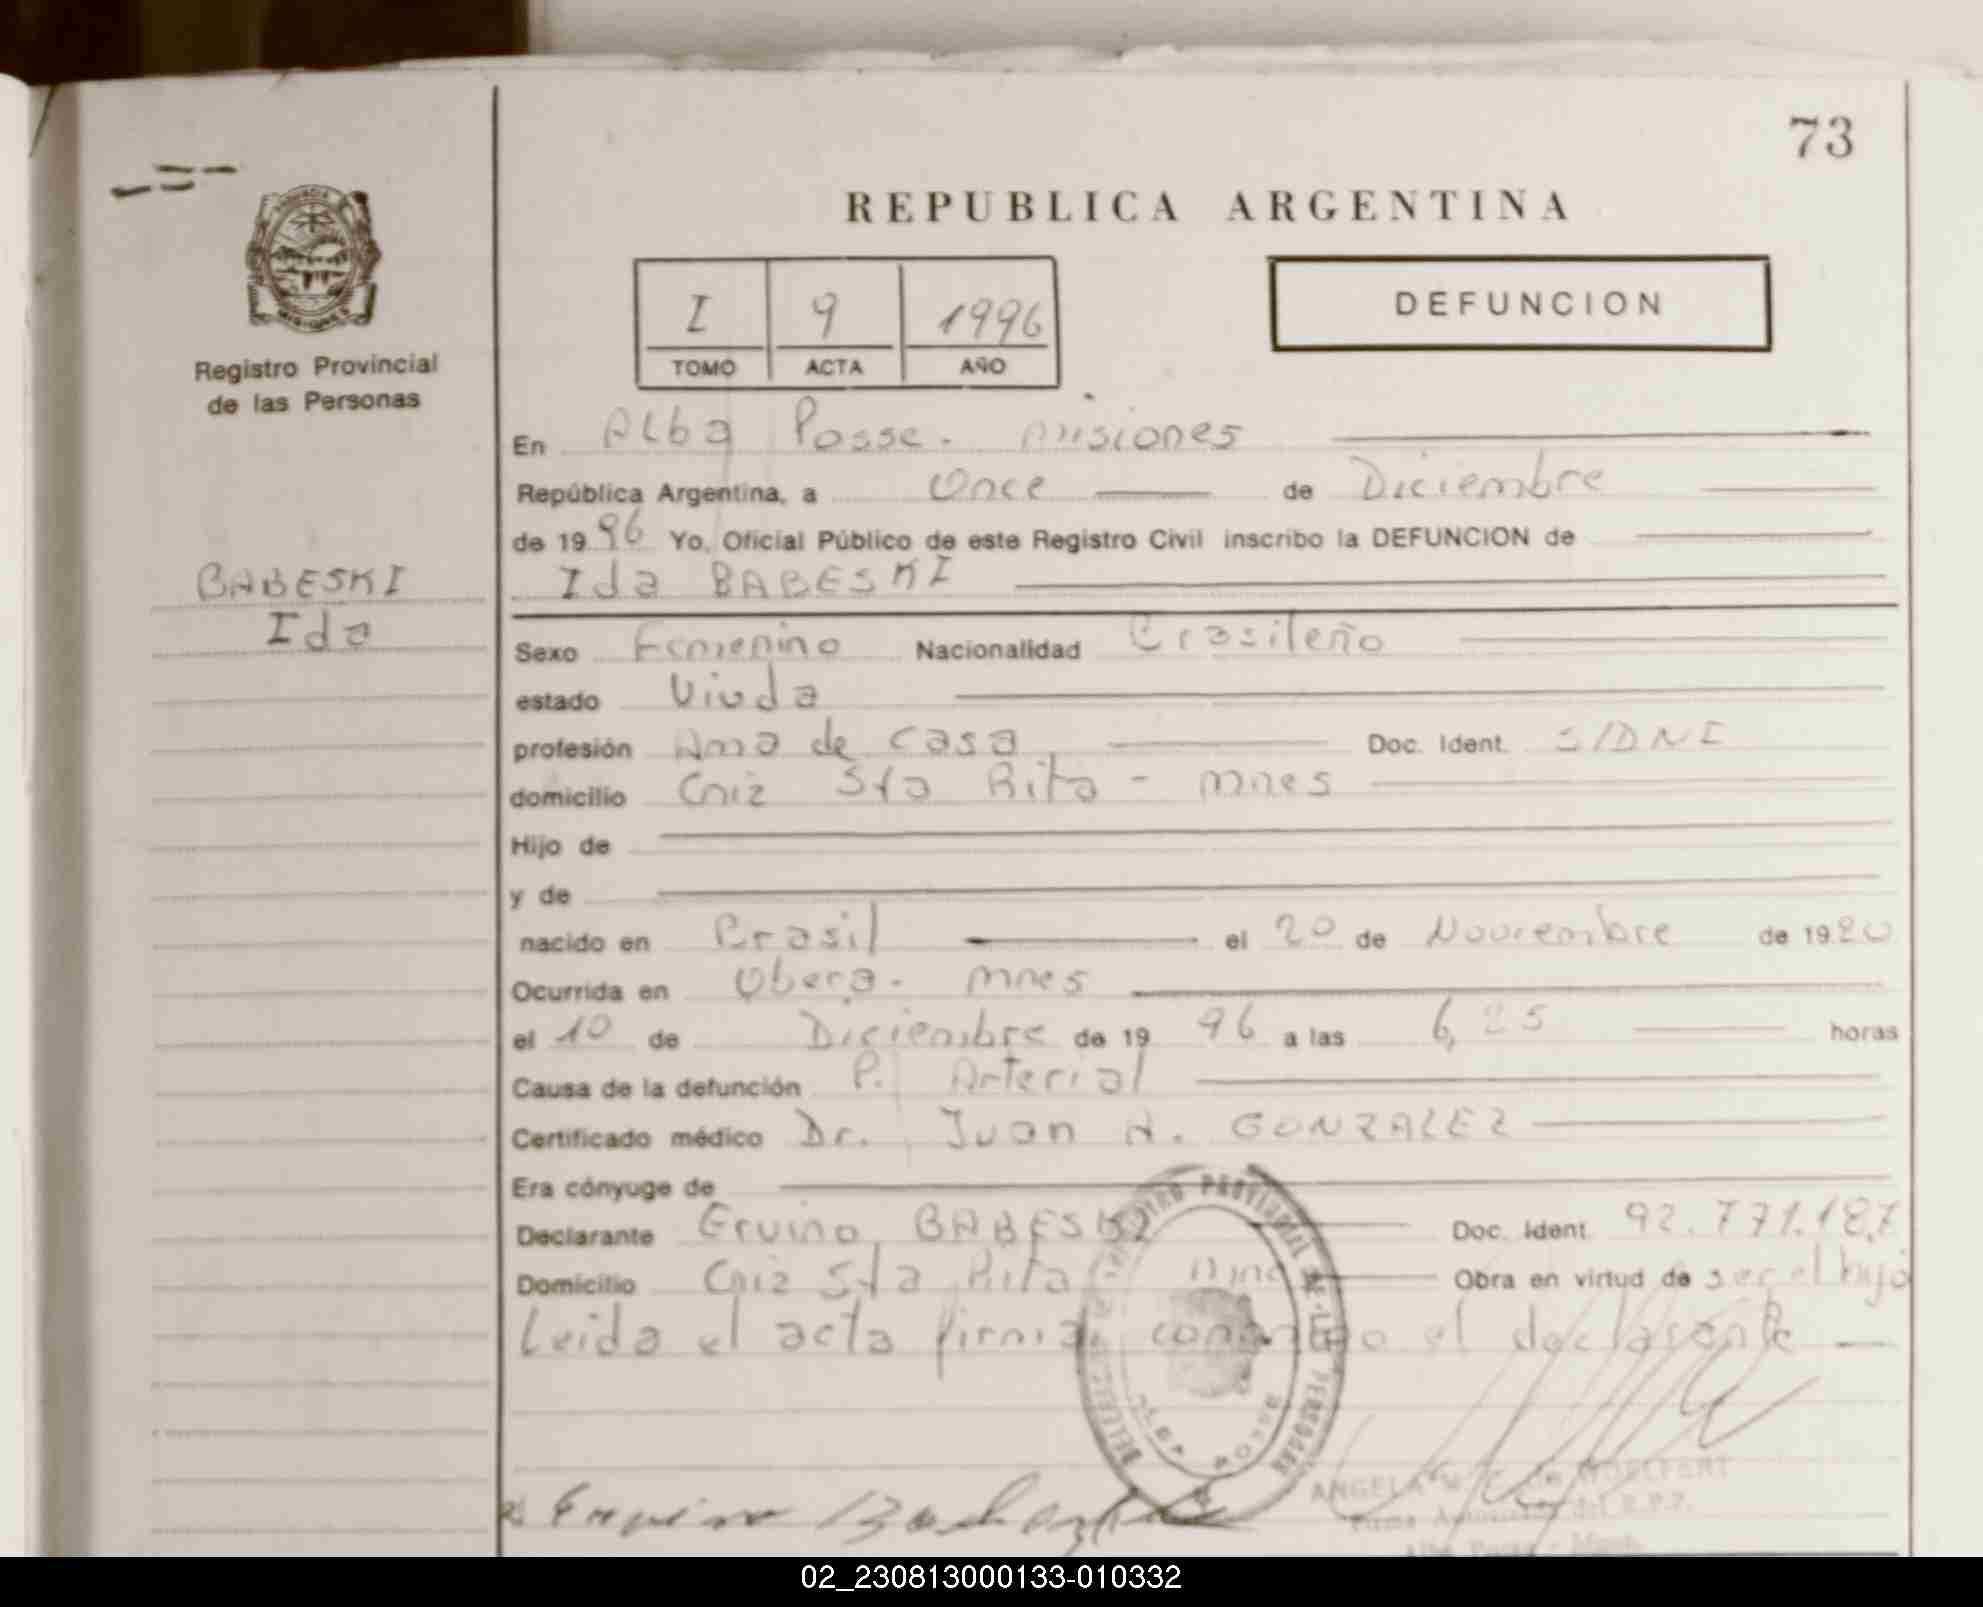 73
REPUBLICA ARGENTINA
I 9 1996
TOMO ACTA AÑO
DEFUNCION
Registro Provincial
de las Personas
BABESKI
Ida
En Alba Posse - Misiones
República Argentina, a Once de Diciembre
de 19 96 Yo, Oficial Público de este Registro Civil inscribo la DEFUNCION de
Ida BABESKI
Sexo Femenino Nacionalidad Brasileña
estado Viuda
profesión Ama de casa Doc. Ident. S/DNI
domicilio Cniz Sta Rita - Mnes
Hijo de
y de
nacido en Brasil el 20 de Noviembre de 19 20
Ocurrida en Obera - Mnes
el 10 de Diciembre de 19 96 a las 6,25 horas
Causa de la defunción P. Arterial
Certificado médico Dr. Juan A. GONZALEZ
Era cónyuge de
Declarante Ervino BABESKI Doc. Ident. 92.771.187
Domicilio Cniz Sta Rita Mnes Obra en virtud de ser el hijo
Leida el acta firma conmigo el declarante
PROVINCIAL DE LAS PERSONAS
ALBA POSSE
ANGELA
02_230813000133-010332